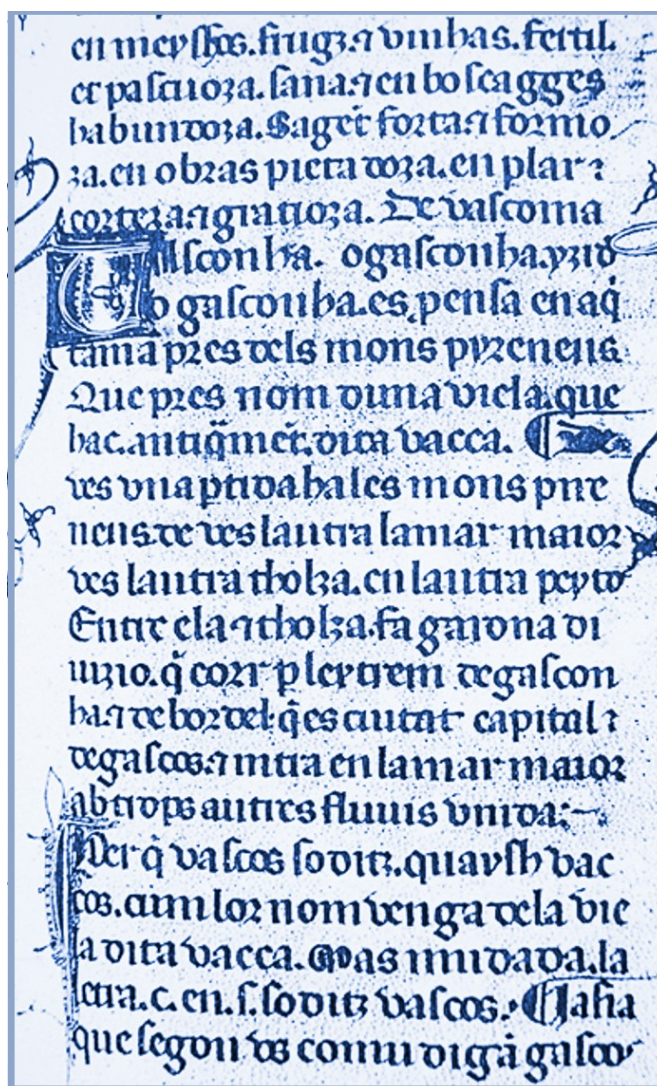 en meyshos. frugz. ⁊ vinhas. fertil.
et pascuoza. sana. ⁊ en boscagges
habundoza. Saget forta. ⁊ formo
za. en obras pietadoza. en plar ⁊
corteza. ⁊ gratioza. De vasconia
Vasconha. o gasconha. yzio
o gasconha. es pensa en aq̇
tania pres dels mons pyreneus.
Que pres nom duna viela. que
hac. antiq̄met. dita vacca. ¶ de
ves vna ptida ha les mons pire
neus. de ves lautra la mar maior
ves lautra tholza. en lautra peyto
Entre ela ⁊ tholza. fa garona di
uizio. q̇ corr p leytrem de gascon
ha. ⁊ de bordel. q̇ es ciutat capital ⁊
de gascos. ⁊ intra en la mar maior
ab trops autres fluuis vnida:
Per q̇ vascos so ditz. quaysh vac
cos. cum lor nom venga de la vie
la dita vacca. Mas mudada. la
letra. c. en. s. so ditz vascos. ¶ Jasia
que segon vs comu digā gasco